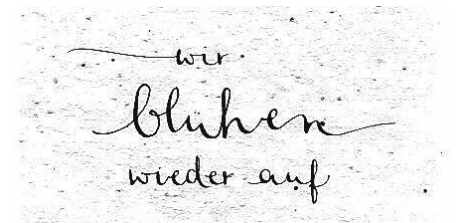 wir
blühen
wieder auf